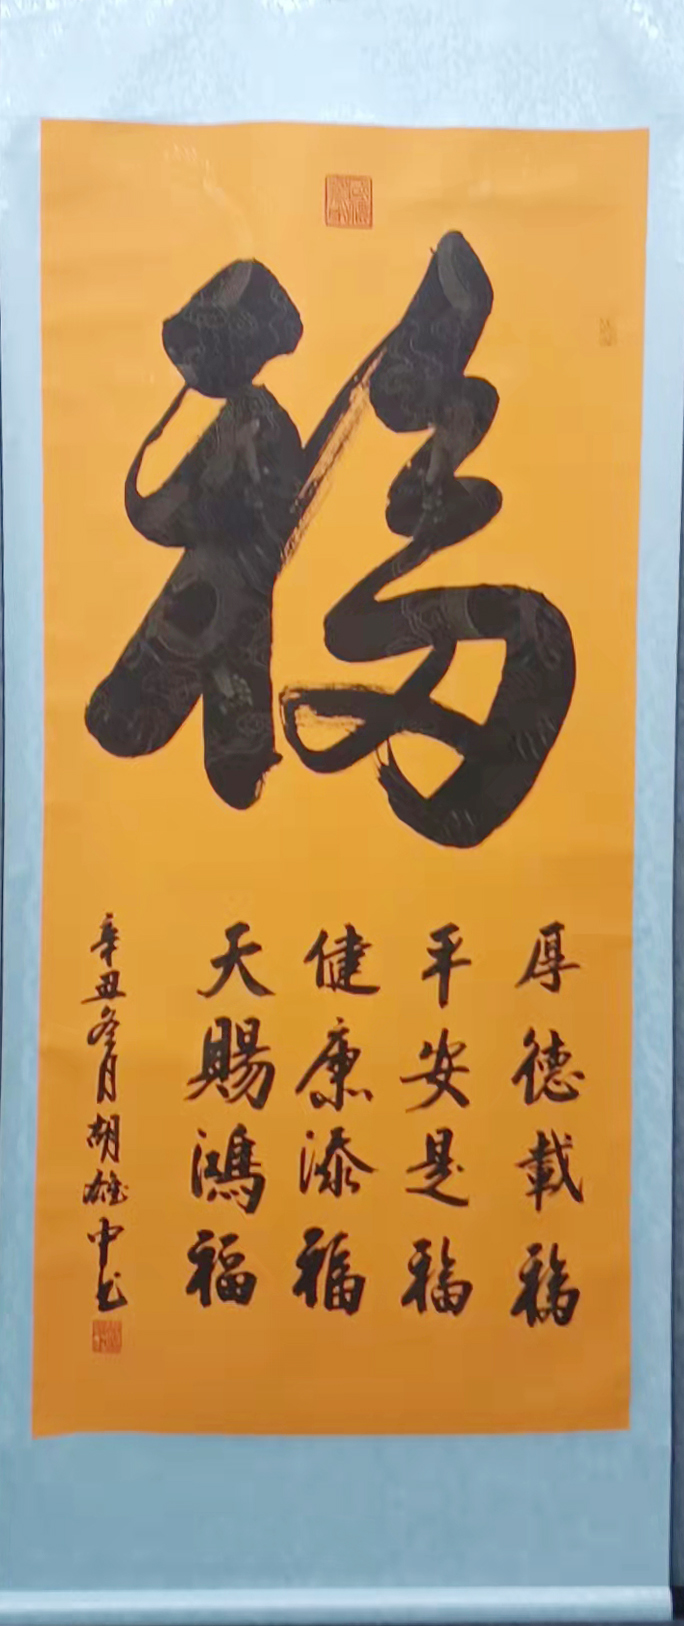 福
厚德載福
平安是福
健康添福
天賜鴻福
辛丑冬月胡雄中书